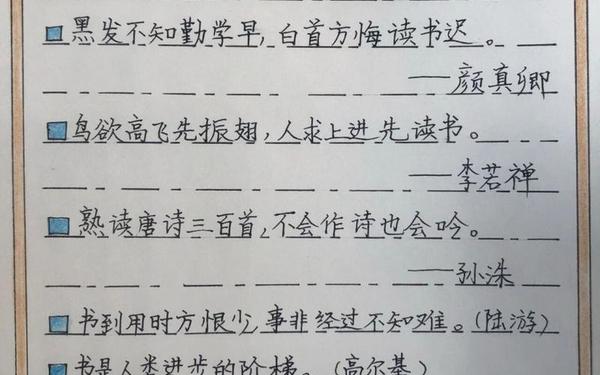 黑发不知勤学早,白首方悔读书迟。
——颜真卿
鸟欲高飞先振翅,人求上进先读书。
——李若禅
熟读唐诗三百首,不会作诗也会吟。
——孙洙
书到用时方恨少,事非经过不知难。(陆游)
书是人类进步的阶梯。(高尔基)